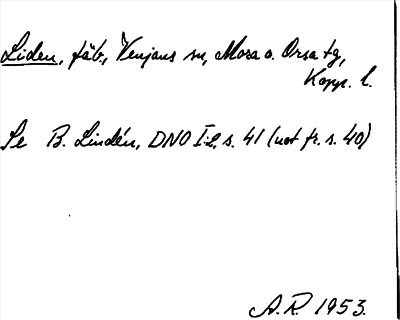 Liden, fäb., Venjans sn, Mora o. Orsa tg,
Kopp. l.
Se B. Lindén, DNO I:2, s. 41 (not fr. s. 40)
A.R. 1953.